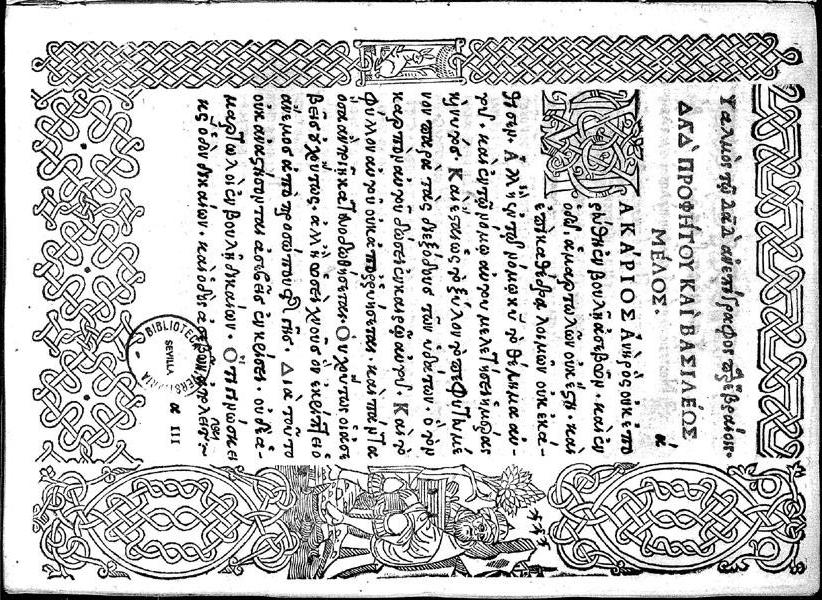 Ψαλμὸς τῷ Δαδ̀ ἀνεπίγραφος παρ' ἑβραίοις.
ΔΑΔ̀ ΠΡΟΦΗΤΟΥ ΚΑΙ ΒΑΣΙΛΕΩΣ
ΜΕΛΟΣ.
ΜΑΚΑΡΙΟΣ Ἀνὴρ ὃς οὐκ ἐπο
ρεύθη ἐν βουλῇ ἀσεβῶν. καὶ ἐν
ὁδῷ ἁμαρτωλῶν οὐκ ἔστη. καὶ
ἐπὶ καθέδρᾳ λοιμῶν οὐκ ἐκά-
θησεν. Ἀλλ' ἢ ἐν τῷ νόμῳ κυ τὸ θέλημα αὐ-
τοῦ. καὶ ἐν τῷ νόμῳ αὐτοῦ μελετήσει ἡμέρας
καὶ νυκτός. Καὶ ἔσται ὡς τὸ ξύλον τὸ πεφυτευμέ
νον παρὰ τὰς διεξόδους τῶν ὑδάτων. ὃ τὸν
καρπὸν αὐτοῦ δώσει ἐν καιρῷ αὐτοῦ. Καὶ τὸ
φύλλον αὐτοῦ οὐκ ἀπορρυήσεται. καὶ πάντα
ὅσα ἂν ποιῇ κατευοδωθήσεται. Οὐχ οὕτως οἱ ἀσε
βεῖς οὐχ οὕτως. ἀλλ' ἢ ὡσεὶ χνοῦς ὃν ἐκρίπτει ὁ
ἄνεμος ἀπὸ προσώπου τῆς γῆς. Διὰ τοῦτο
οὐκ ἀναστήσονται ἀσεβεῖς ἐν κρίσει. οὐδὲ ἁ-
μαρτωλοὶ ἐν βουλῇ δικαίων. Ὅτι γινώσκει
κς ὁδὸν δικαίων. καὶ ὁδὸς ἀσεβῶν ἀπολεῖται
α III
BIBLIOTECA
SEVILLA